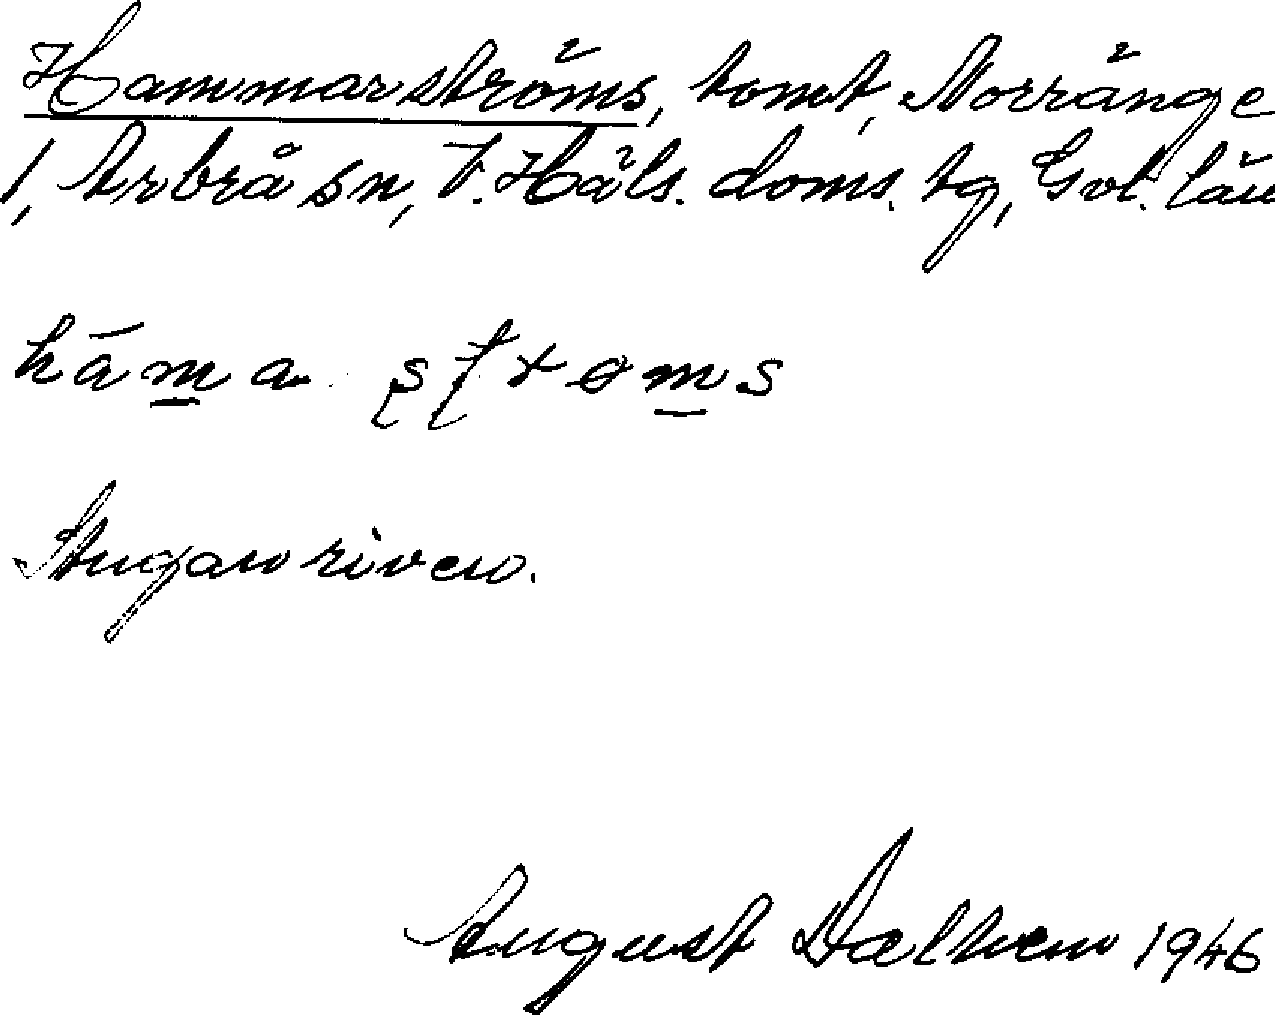 Hammarströms, tomt, Norränge
1, Arbrå sn, V. Häls. doms. tg, Gvl. län
Stugan riven.
August Dalhem 1946